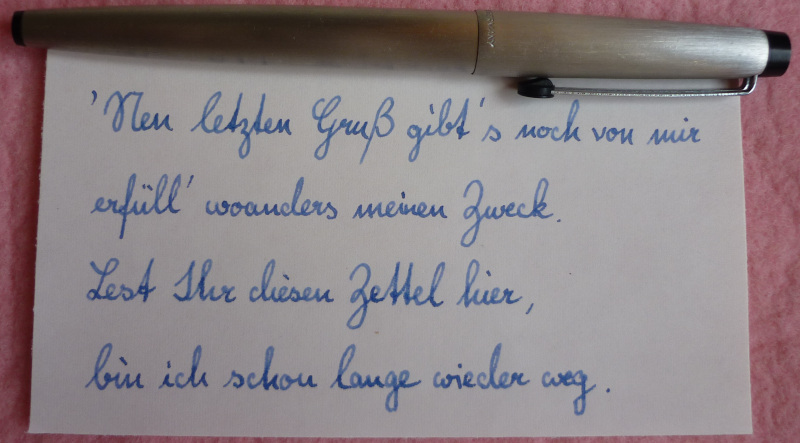 'Nen letzten Gruß gibt's noch von mir
erfüll' woanders meinen Zweck.
Lest Ihr diesen Zettel hier,
bin ich schon lange wieder weg.